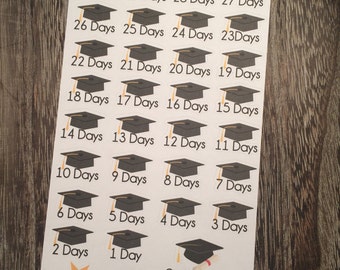 27 Days
26 Days 25 Days 24 Days 23Days
22 Days 21 Days 20 Days 19 Days
18 Days 17 Days 16 Days 15 Days
14 Days 13 Days 12 Days 11 Days
10 Days 9 Days 8 Days 7 Days
6 Days 5 Days 4 Days 3 Days
2 Days 1 Day